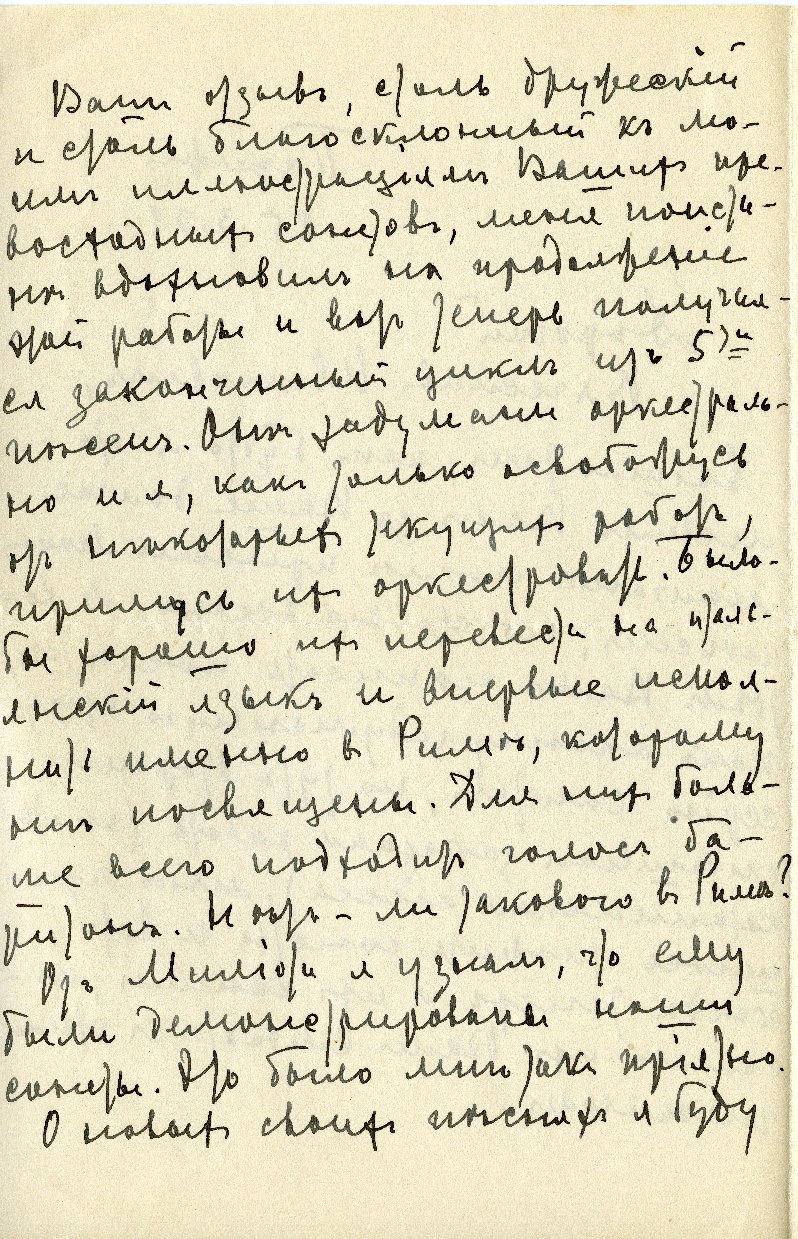 Вашъ отзывъ, столь дружескій
и столь благосклонный къ мо-
имъ иллюстраціямъ Вашихъ пре-
восходныхъ сонетовъ, меня поисти-
нѣ вдохновилъ на продолженіе
этой работы и вотъ теперь получил-
ся законченный циклъ изъ 5ти
пьесъ. Онѣ задуманы оркестраль-
но и я, какъ только освобожусь
отъ нѣкоторыхъ текущихъ работъ,
примусь ихъ оркестровать. Было-
бы хорошо ихъ перевести на italь-
янскій языкъ и впервые испол-
нить именно в Римѣ, которому
они посвящены. Для нихъ боль-
ше всего подходитъ голосъ ба-
ритонъ. Нѣтъ-ли таковаго в Римѣ?
Отъ Миліоти я узналъ, что ему
были демонстрированы наши
сонеты. Это было мнѣ такъ пріятно.
О новыхъ своихъ пѣсняхъ я буду